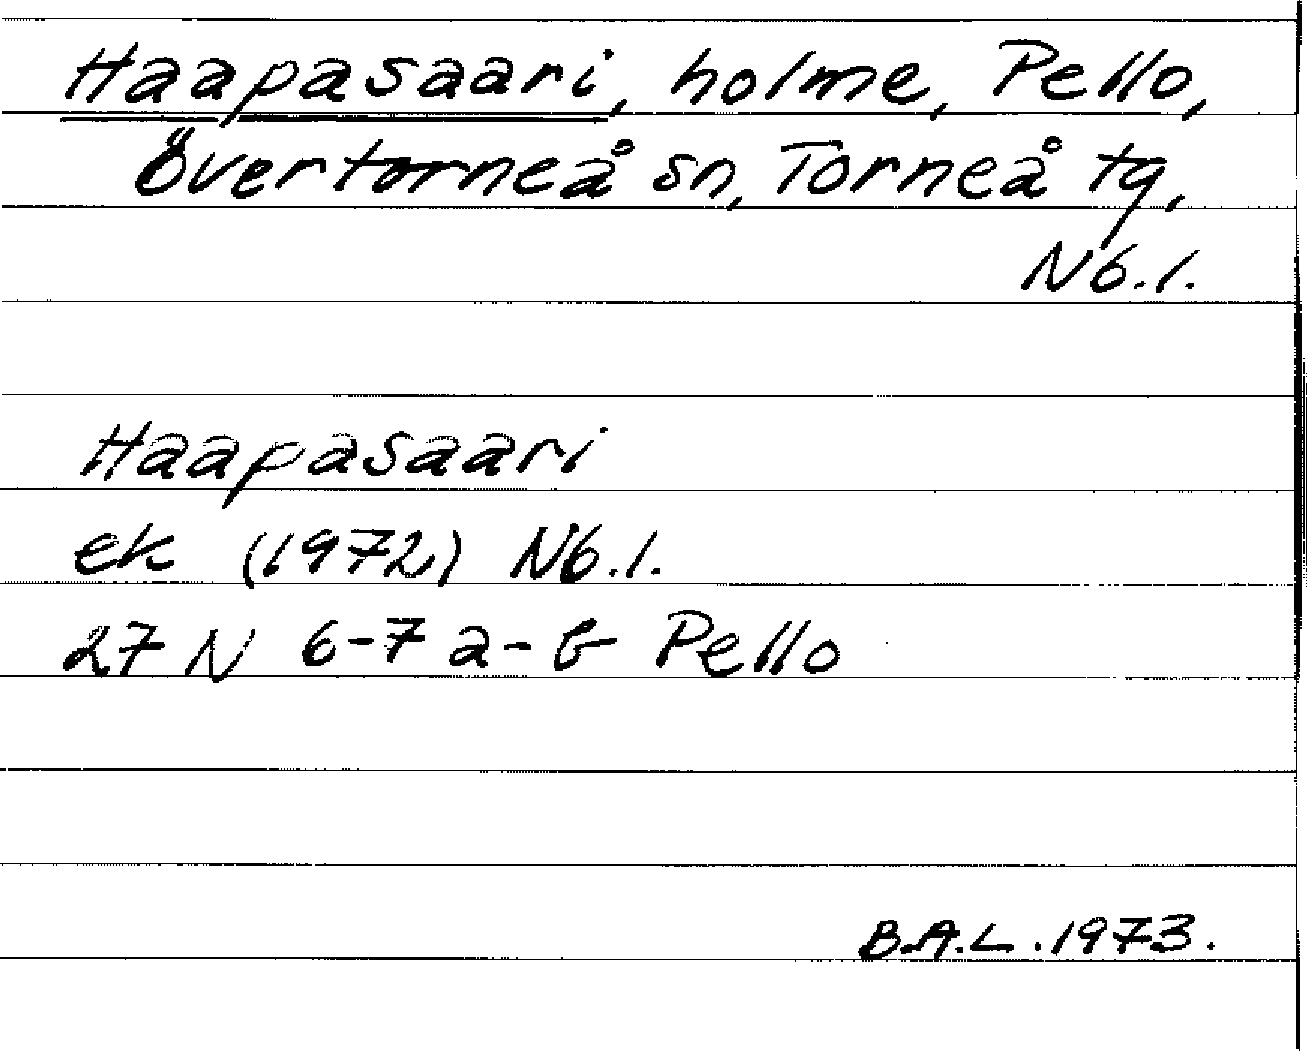 Haapasaari, holme, Pello,
Övertorneå sn, Torneå tg,
Nb.l.
Haapasaari
ek (1972) Nb.l.
27 N 6-7 a-b Pello
B.A.L. 1973.